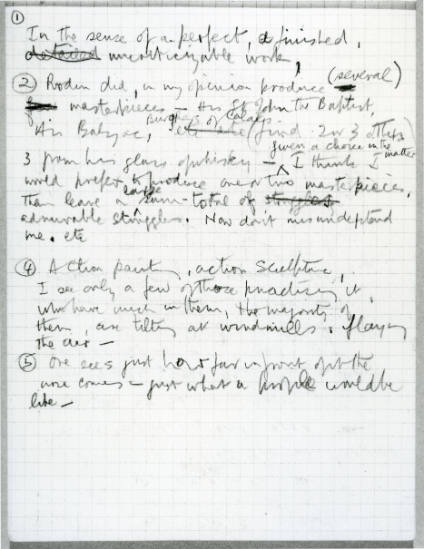 ①
In the sense of a perfect, a finished,
detailed uncriticizable work,
② Rodin did, in my opinion produce (several)
masterpieces — His St John The Baptist,
His Balzac, burghers of Calais (find 2 or 3 others)
given a choice in the matter
3 from his glass of whisky — I think I
would prefer to produce one or two masterpieces,
large
than leave a sum-total of struggles
admirable struggles. Now don't misunderstand
me. etc
④ Action painting, action sculpture,
I see only a few of those practising it
who have much in them, the majority of
them, are tilting at windmills. flaying
the air —
⑤ One sees just how far in front of the
nose comes — just what a profile would be
like —